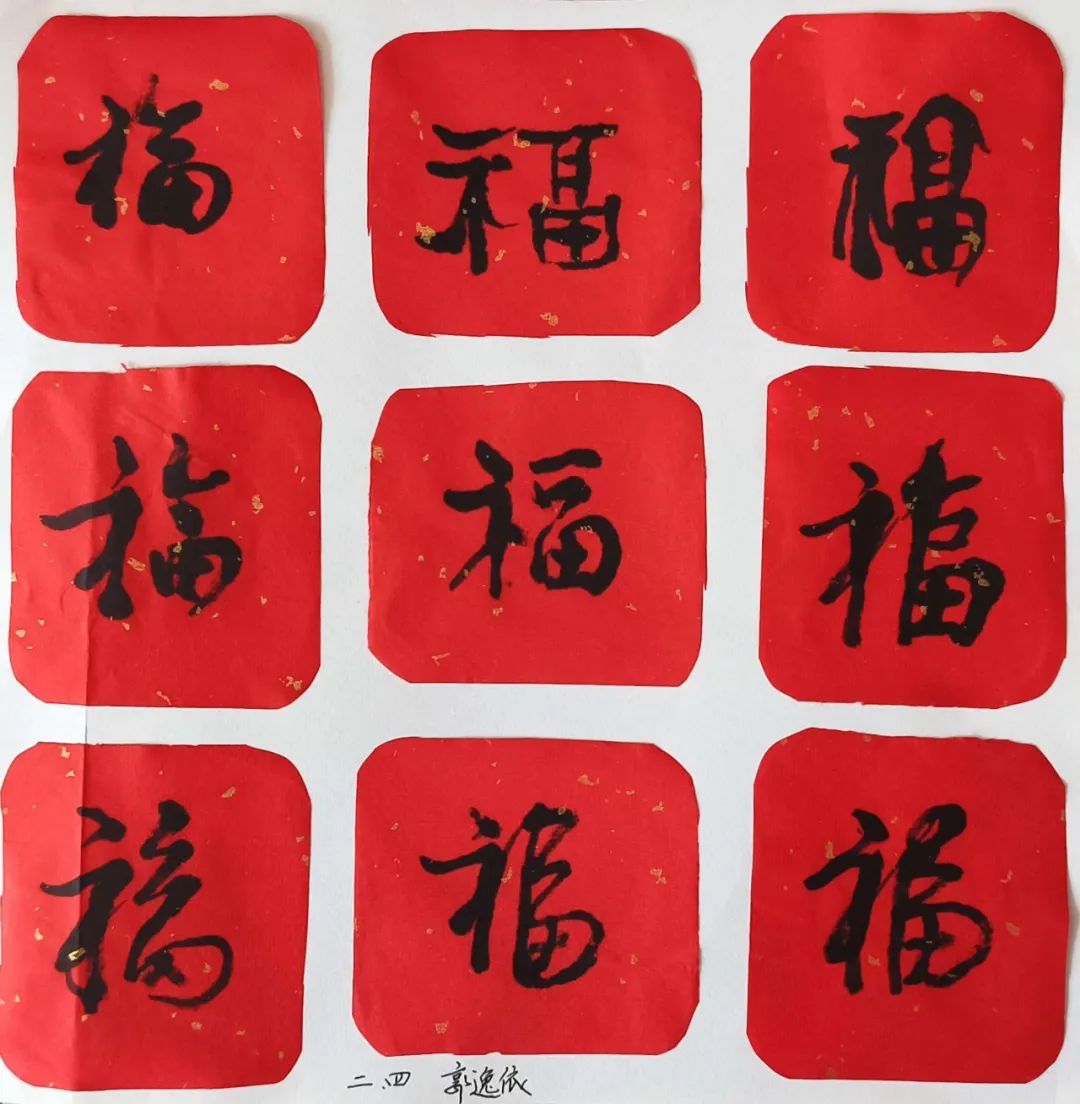 福 福 福
福 福 福
福 福 福
二.四 郭逸依